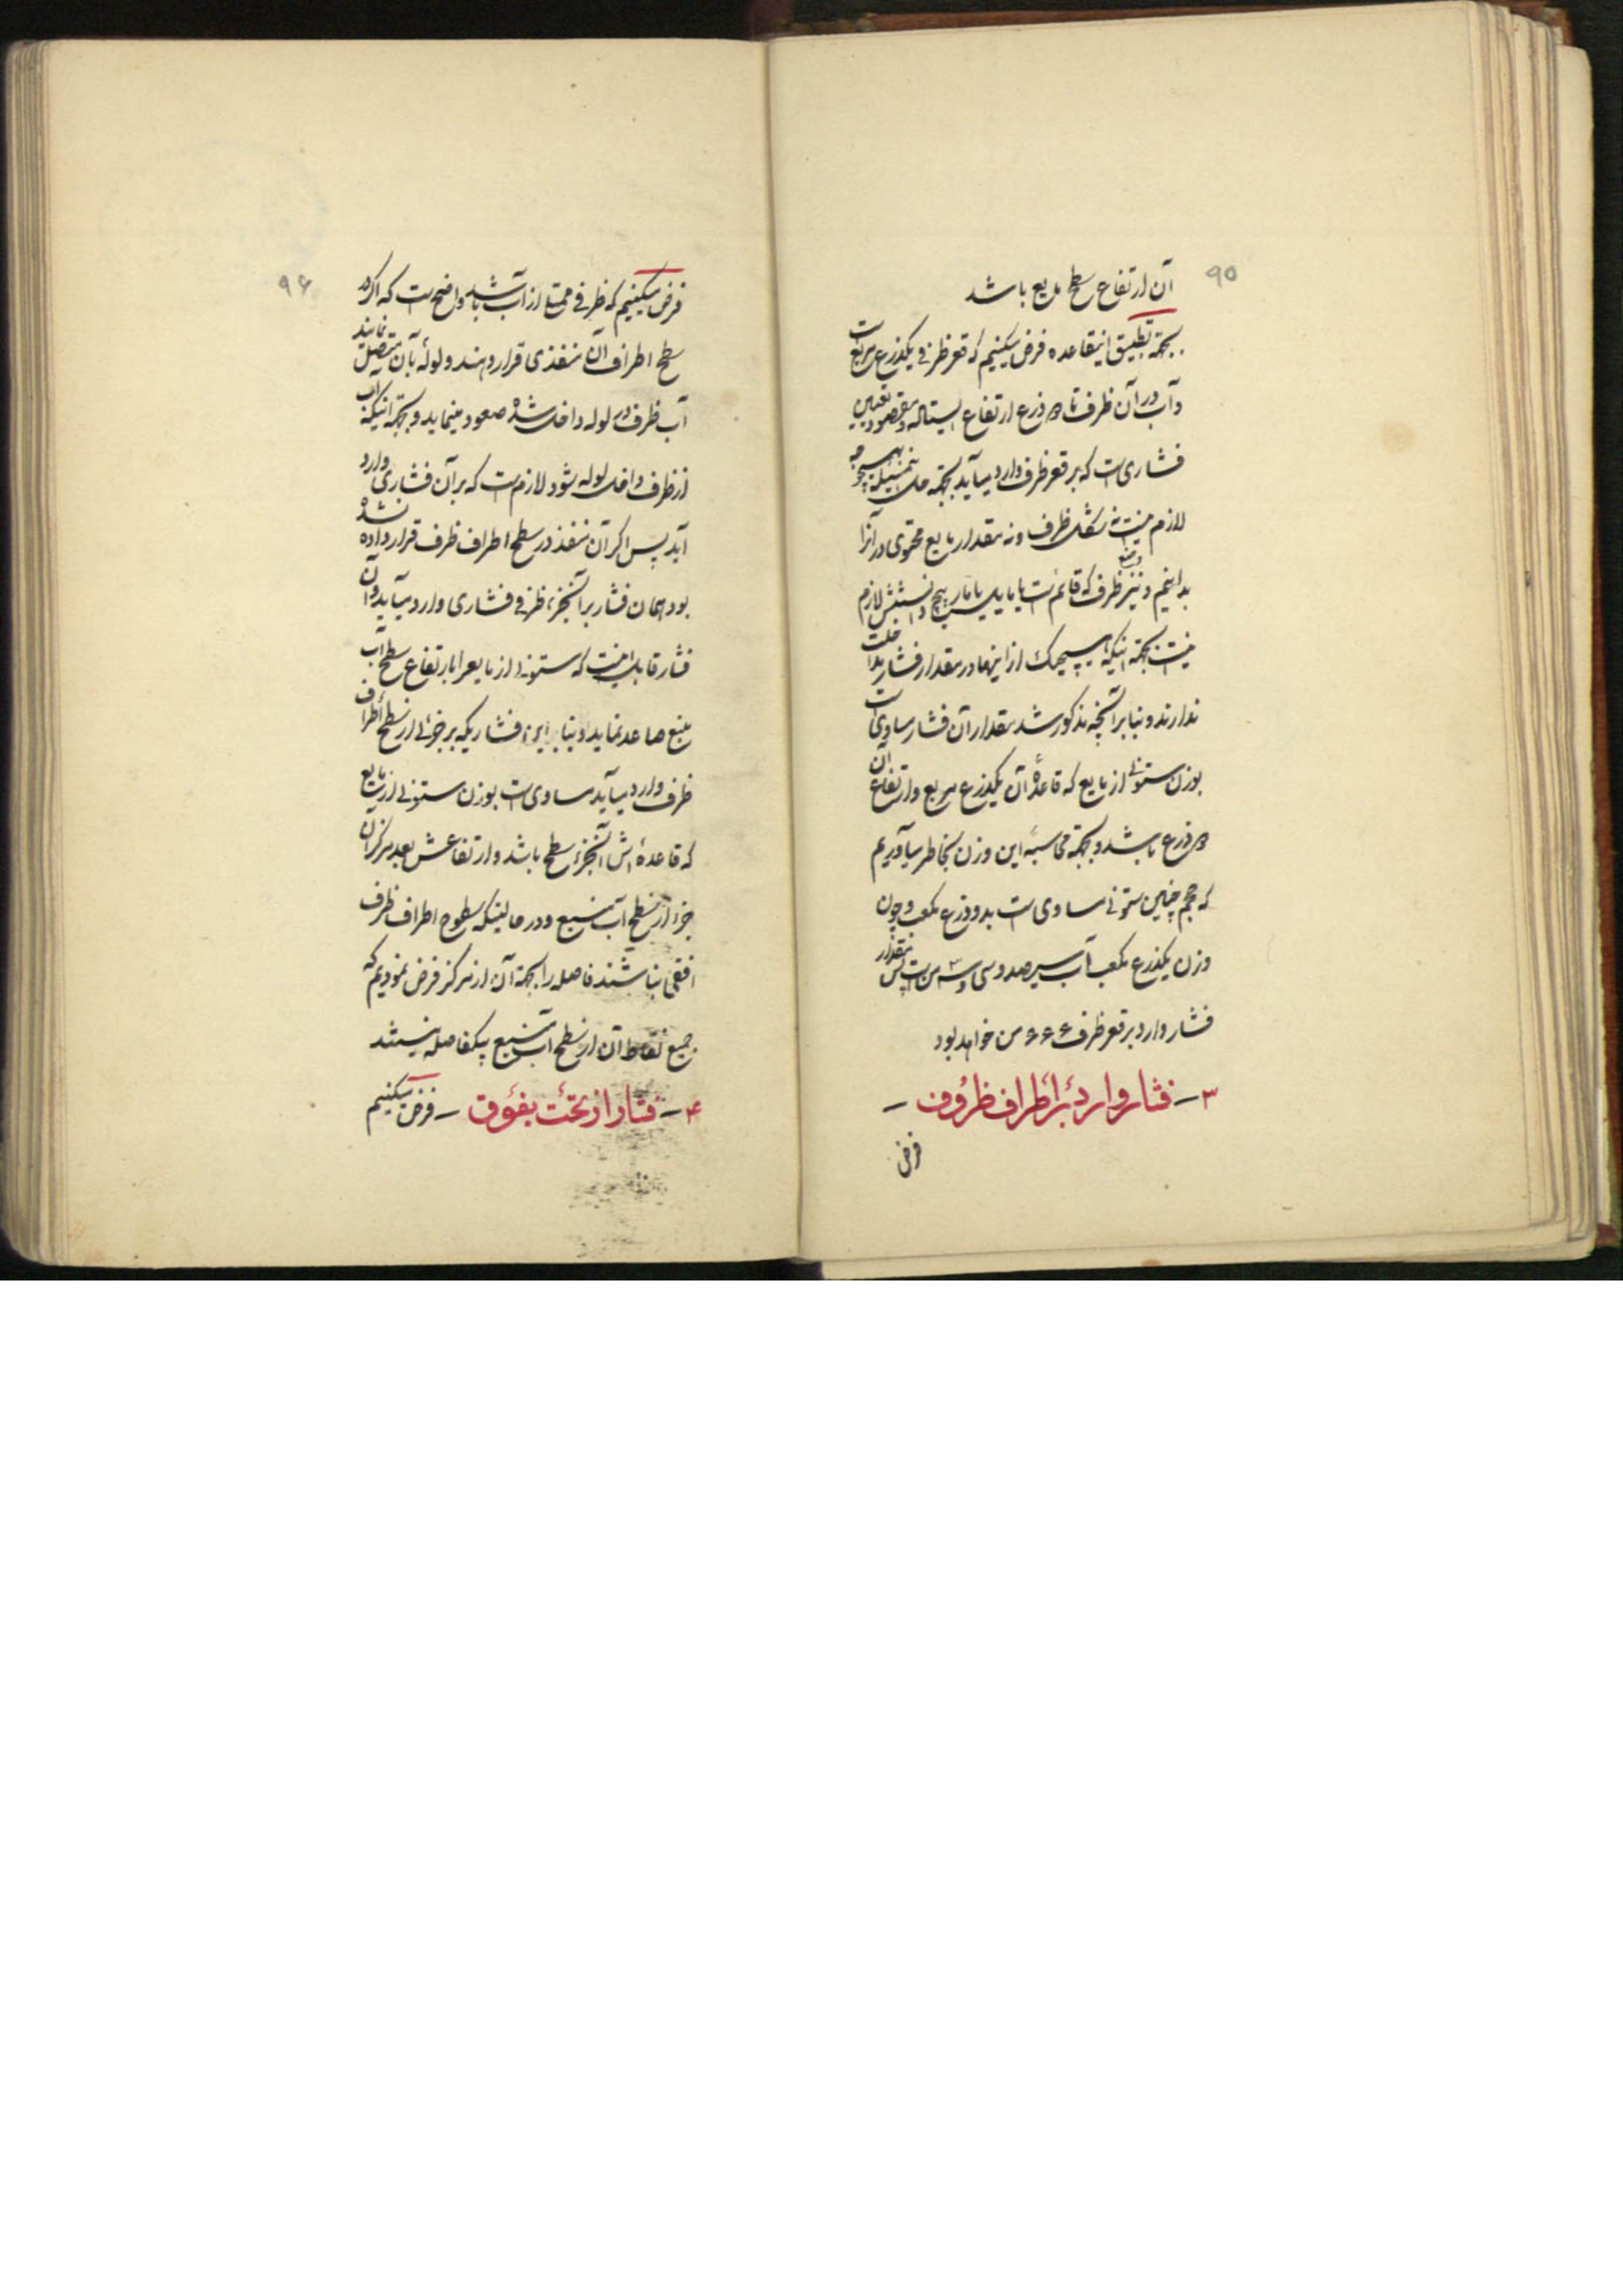 ۹۵
آن ارتفاع سطح مایع باشد
بجهة تطبیق اینقاعده فرض میکنیم که قعر ظرفی یکذرع مربع است
و آب در آن ظرف تا ۲ ذرع ارتفاع ایستاده و مقصود تعیین
فشاری است که بر قعر ظرف وارد میآید بجهة حل این مسئله بهیچوجه
لازم نیست نه شکل ظرف و نه مقدار مایع محتوی در آنرا
بدانیم و نیز وضع ظرف که قائم است یا مایل یا مارپیچ دانستنش لازم
نیست بجهة اینکه هیچیک از اینها در مقدار فشار مداخلت
ندارند و بنا بر آنچه مذکور شد مقدار آن فشار مساوی است
بوزن ستونی از مایع که قاعدهٔ آن یکذرع مربع و ارتفاع آن
۲ ذرع باشد و بجهة محاسبهٔ این وزن بخاطر میآوریم
که حجم چنین ستونی مساوی است بدو ذرع مکعب و چون
وزن یکذرع مکعب آب سیصد و سی و سه من است پس مقدار
فشار وارد بر قعر ظرف ۶۶۶ من خواهد بود
۳ – فشار وارد بر اطراف ظروف –
فرض
۹۶
فرض میکنیم که ظرفی ممتلی از آب باشد واضح است که اگر در
سطح اطراف آن منفذی قرار دهند و لولهٔ بآن متصل نمایند
آب ظرف در لوله داخل شده صعود مینماید و بجهة اینکه آب
از ظرف داخل لوله شود لازم است که بر آن فشاری وارد
آید پس اگر آن منفذ در سطح اطراف ظرف قرار داده نشده
بود همان فشار بر آنجزء ظرفی فشاری وارد میآید و آن
فشار قابل اینست که ستونی از مایع را بارتفاع سطح آب
منبع صاعد نماید و بنا براین فشاریکه بر جزئی از سطح اطراف
ظرف وارد میآید مساوی است بوزن ستونی از مایع
که قاعده‌اش آنجزء سطح باشد و ارتفاعش بعد مرکز آن
جزء از سطح آب منبع و در حالتیکه سطوح اطراف ظرف
افقی نباشند فاصله را بجهة آن از مرکز فرض نمودیم که
جمیع نقاط آن از سطح آب منبع بیکفاصله نیستند
۴ – فشار از تحت بفوق – فرض میکنیم